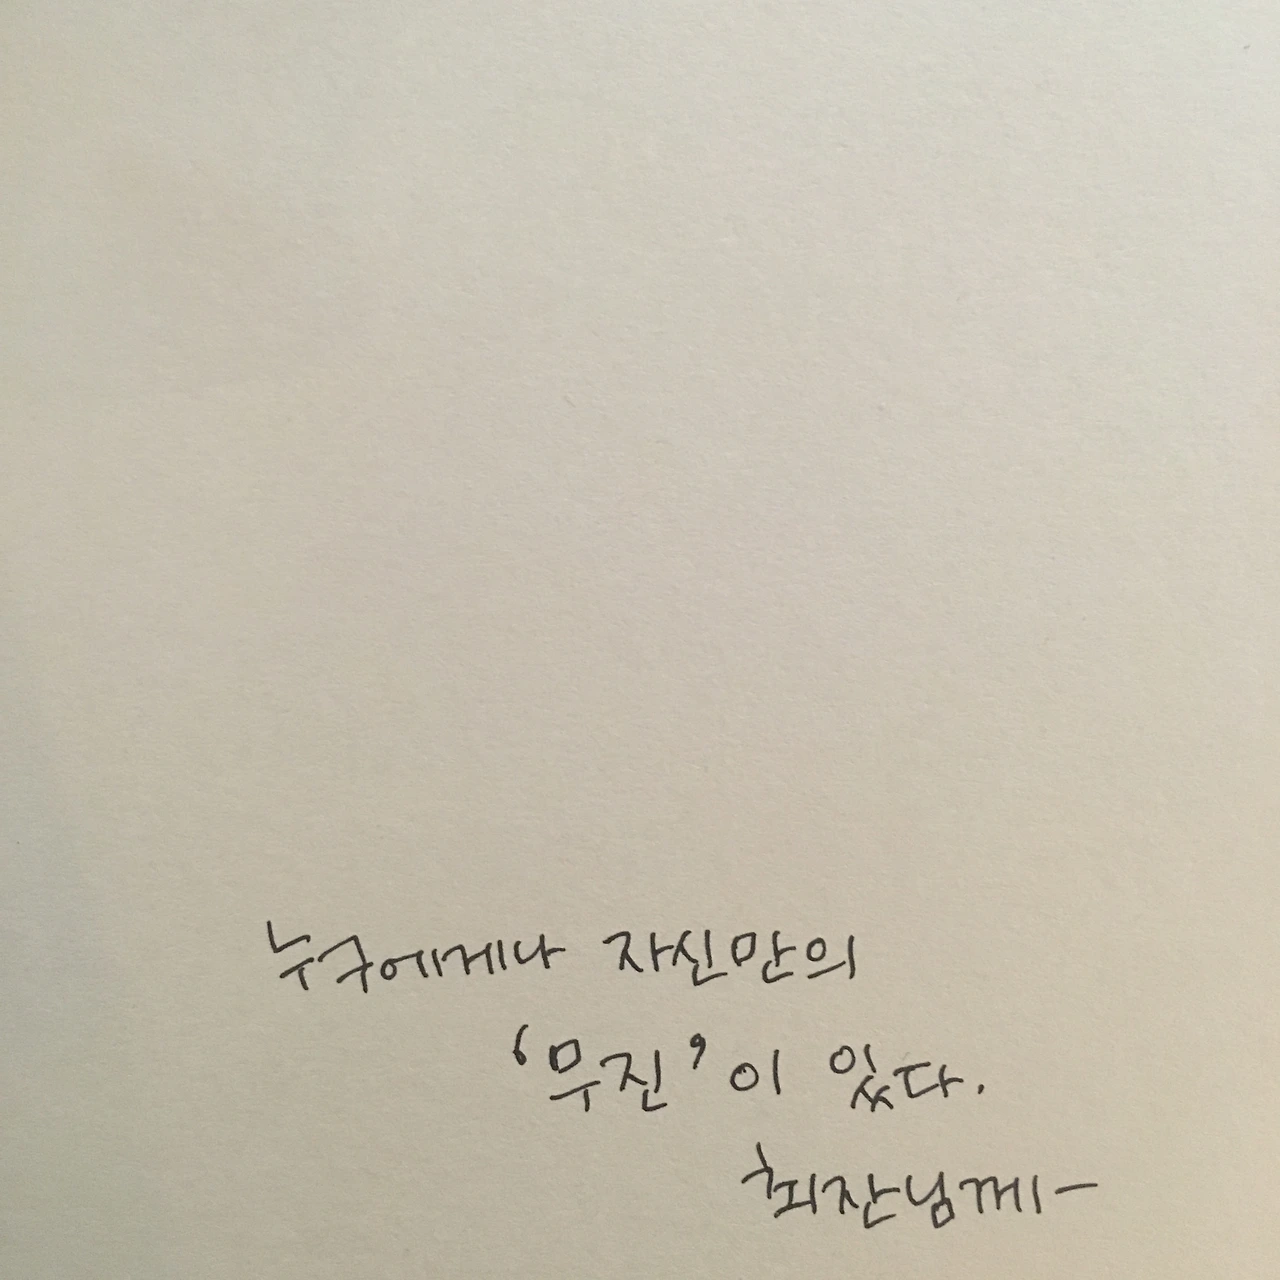 누구에게나 자신만의
‘무진’이 있다.
최잔님께—